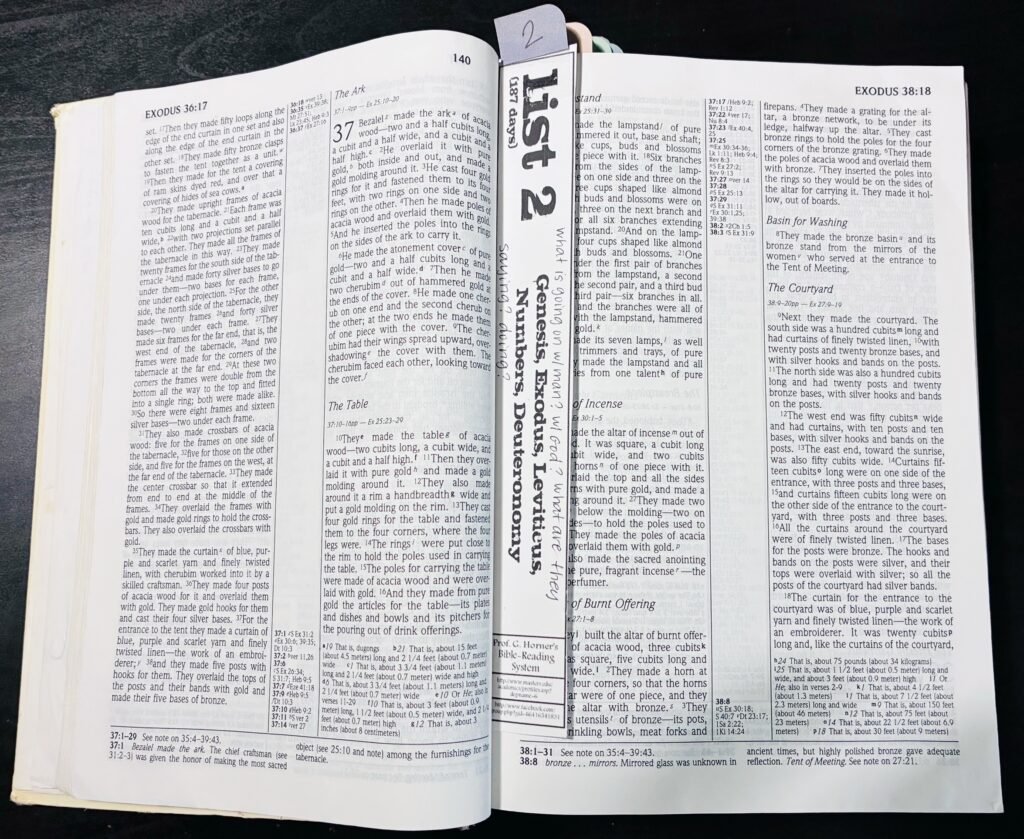 EXODUS 36:17
set. 17Then they made fifty loops along the
edge of the end curtain in one set and also
along the edge of the end curtain in the
other set. 18They made fifty bronze clasps
to fasten the tent together as a unit.
19Then they made for the tent a covering
of ram skins dyed red, and over that a
covering of hides of sea cows.
20They made upright frames of acacia
wood for the tabernacle. 21Each frame was
ten cubits long and a cubit and a half
wide, 22with two projections set parallel
to each other. They made all the frames of
the tabernacle in this way. 23They made
twenty frames for the south side of the tab-
ernacle 24and made forty silver bases to go
under them—two bases for each frame,
one under each projection. 25For the other
side, the north side of the tabernacle, they
made twenty frames 26and forty silver
bases—two under each frame. 27They
made six frames for the far end, that is, the
west end of the tabernacle, 28and two
frames were made for the corners of the
tabernacle at the far end. 29At these two
corners the frames were double from the
bottom all the way to the top and fitted
into a single ring; both were made alike.
30So there were eight frames and sixteen
silver bases—two under each frame.
31They also made crossbars of acacia
wood: five for the frames on one side of
the tabernacle, 32five for those on the other
side, and five for the frames on the west, at
the far end of the tabernacle. 33They made
the center crossbar so that it extended
from end to end at the middle of the
frames. 34They overlaid the frames with
gold and made gold rings to hold the cross-
bars. They also overlaid the crossbars with
gold.
35They made the curtain of blue, pur-
ple and scarlet yarn and finely twisted
linen, with cherubim worked into it by a
skilled craftsman. 36They made four posts
of acacia wood for it and overlaid them
with gold. They made gold hooks for them
and cast their four silver bases. 37For the
entrance to the tent they made a curtain of
blue, purple and scarlet yarn and finely
twisted linen—the work of an embroi-
derer; 38and they made five posts with
hooks for them. They overlaid the tops of
the posts and their bands with gold and
made their five bases of bronze.
37:1 S Ex 31:2
37:2 ver 11,26
37:6
37:10 Heb 9:2
37:11 S ver 2
37:14 ver 27
140
The Ark
37:1-9pp — Ex 25:10-20
37 Bezalel made the ark of acacia
wood—two and a half cubits long,
a cubit and a half wide, and a cubit and a
half high. 2He overlaid it with pure
gold, both inside and out, and made a
gold molding around it. 3He cast four gold
rings for it and fastened them to its four
feet, with two rings on one side and two
rings on the other. 4Then he made poles of
acacia wood and overlaid them with gold.
5And he inserted the poles into the rings
on the sides of the ark to carry it.
6He made the atonement cover of pure
gold—two and a half cubits long and a
cubit and a half wide. 7Then he made
two cherubim out of hammered gold at
the ends of the cover. 8He made one cher-
ub on one end and the second cherub on
the other; at the two ends he made them
of one piece with the cover. 9The cher-
ubim had their wings spread upward, over-
shadowing the cover with them. The
cherubim faced each other, looking toward
the cover.
The Table
37:10-16pp — Ex 25:23-29
10They made the table of acacia
wood—two cubits long, a cubit wide, and
a cubit and a half high. 11Then they over-
laid it with pure gold and made a gold
molding around it. 12They also made
around it a rim a handbreadth wide and
put a gold molding on the rim. 13They cast
four gold rings for the table and fastened
them to the four corners, where the four
legs were. 14The rings were put close to
the rim to hold the poles used in carrying
the table. 15The poles for carrying the table
were made of acacia wood and were over-
laid with gold. 16And they made from pure
gold the articles for the table—its plates
and dishes and bowls and its pitchers for
the pouring out of drink offerings.
19 That is, dugongs b21 That is, about 15 feet
(about 4.5 meters) long and 2 1/4 feet (about 0.7 meter)
wide c1 That is, about 3 3/4 feet (about 1.1 meters)
long and 2 1/4 feet (about 0.7 meter) wide and high
d6 That is, about 3 3/4 feet (about 1.1 meters) long and
2 1/4 feet (about 0.7 meter) wide e10 Or He; also in
verses 11-29 f10 That is, about 3 feet (about 0.9
meter) long, 1 1/2 feet (about 0.5 meter) wide, and 2 1/4
feet (about 0.7 meter) high g12 That is, about 3
inches (about 8 centimeters)
37:1-29 See note on 35:4-39:43.
37:1 Bezalel made the ark. The chief craftsman (see
31:2-3) was given the honor of making the most sacred
object (see 25:10 and note) among the furnishings for the
tabernacle.
2
list 2
(187 days)
Genesis, Exodus, Leviticus,
Numbers, Deuteronomy
what is going on w/ man? w/ God? what are they
saying? doing?
Prof. G. Horner's
Bible-Reading
System
EXODUS 38:18
stand
25:31-39
made the lampstand of pure
mmered it out, base and shaft;
ke cups, buds and blossoms
piece with it. 18Six branches
from the sides of the lamp-
on one side and three on the
ee cups shaped like almond
buds and blossoms were on
three on the next branch and
or all six branches extending
mpstand. 20And on the lamp-
four cups shaped like almond
h buds and blossoms. 21One
nder the first pair of branches
rom the lampstand, a second
second pair, and a third bud
hird pair—six branches in all.
and the branches were all of
ith the lampstand, hammered
gold.
ade its seven lamps, as well
trimmers and trays, of pure
y made the lampstand and all
es from one talent of pure
of Incense
Ex 30:1-5
ade the altar of incense out of
It was square, a cubit long
bit wide, and two cubits
horns of one piece with it.
rlaid the top and all the sides
rns with pure gold, and made a
ing around it. 27They made two
below the molding—two on
des—to hold the poles used to
They made the poles of acacia
overlaid them with gold.
also made the sacred anointing
e pure, fragrant incense—the
perfumer.
of Burnt Offering
x 27:1-8
ey built the altar of burnt offer-
of acacia wood, three cubits
as square, five cubits long and
wide. 2They made a horn at
four corners, so that the horns
ar were of one piece, and they
the altar with bronze. 3They
utensils of bronze—its pots,
inkling bowls, meat forks and
37:17 Heb 9:2;
Rev 1:12
37:22 ver 17;
Nu 8:4
37:23 Ex 40:4,
25
37:25
Ex 30:34-36;
Lk 1:11; Heb 9:4;
Rev 8:3
S Ex 27:2;
Rev 9:13
37:27 ver 14
37:28
S Ex 25:13
37:29
S Ex 31:11
Ex 30:1,25;
39:38
38:2 2Ch 1:5
38:3 S Ex 31:9
38:8
S Ex 30:18;
S 40:7 Dt 23:17;
1Sa 2:22;
1Ki 14:24
firepans. 4They made a grating for the al-
tar, a bronze network, to be under its
ledge, halfway up the altar. 5They cast
bronze rings to hold the poles for the four
corners of the bronze grating. 6They made
the poles of acacia wood and overlaid them
with bronze. 7They inserted the poles into
the rings so they would be on the sides of
the altar for carrying it. They made it hol-
low, out of boards.
Basin for Washing
8They made the bronze basin and its
bronze stand from the mirrors of the
women who served at the entrance to
the Tent of Meeting.
The Courtyard
38:9-20pp — Ex 27:9-19
9Next they made the courtyard. The
south side was a hundred cubits long and
had curtains of finely twisted linen, 10with
twenty posts and twenty bronze bases, and
with silver hooks and bands on the posts.
11The north side was also a hundred cubits
long and had twenty posts and twenty
bronze bases, with silver hooks and bands
on the posts.
12The west end was fifty cubits wide
and had curtains, with ten posts and ten
bases, with silver hooks and bands on the
posts. 13The east end, toward the sunrise,
was also fifty cubits wide. 14Curtains fif-
teen cubits long were on one side of the
entrance, with three posts and three bases,
15and curtains fifteen cubits long were on
the other side of the entrance to the court-
yard, with three posts and three bases.
16All the curtains around the courtyard
were of finely twisted linen. 17The bases
for the posts were bronze. The hooks and
bands on the posts were silver, and their
tops were overlaid with silver; so all the
posts of the courtyard had silver bands.
18The curtain for the entrance to the
courtyard was of blue, purple and scarlet
yarn and finely twisted linen—the work of
an embroiderer. It was twenty cubits
long and, like the curtains of the courtyard,
h24 That is, about 75 pounds (about 34 kilograms)
i25 That is, about 1 1/2 feet (about 0.5 meter) long and
wide, and about 3 feet (about 0.9 meter) high j1 Or
He; also in verses 2-9 k1 That is, about 4 1/2 feet
(about 1.3 meters) l1 That is, about 7 1/2 feet (about
2.3 meters) long and wide m9 That is, about 150 feet
(about 46 meters) n12 That is, about 75 feet (about
23 meters) o14 That is, about 22 1/2 feet (about 6.9
meters) p18 That is, about 30 feet (about 9 meters)
38:1-31 See note on 35:4-39:43.
38:8 bronze . . . mirrors. Mirrored glass was unknown in
ancient times, but highly polished bronze gave adequate
reflection. Tent of Meeting. See note on 27:21.